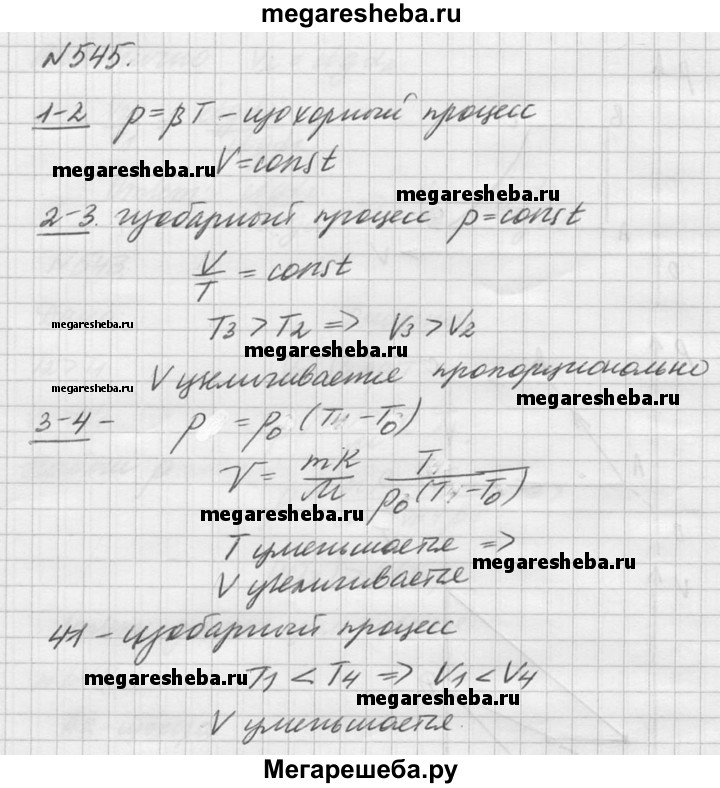 megaresheba.ru
№545.
1-2 p=βT – изохорный процесс
megaresheba.ru V=const
megaresheba.ru
2-3. изобарный процесс p=const
V/T = const
megaresheba.ru T3 > T2 => V3 > V2
megaresheba.ru
V увеличивается пропорционально
megaresheba.ru
3-4 – p = p0 (T – T0)
V = mR/M T/p0(T – T0)
megaresheba.ru
T уменьшается =>
megaresheba.ru
V увеличивается
41 – изобарный процесс
megaresheba.ru T1 < T4 => V1 < V4
megaresheba.ru
V уменьшается.
Мегарешеба.ру